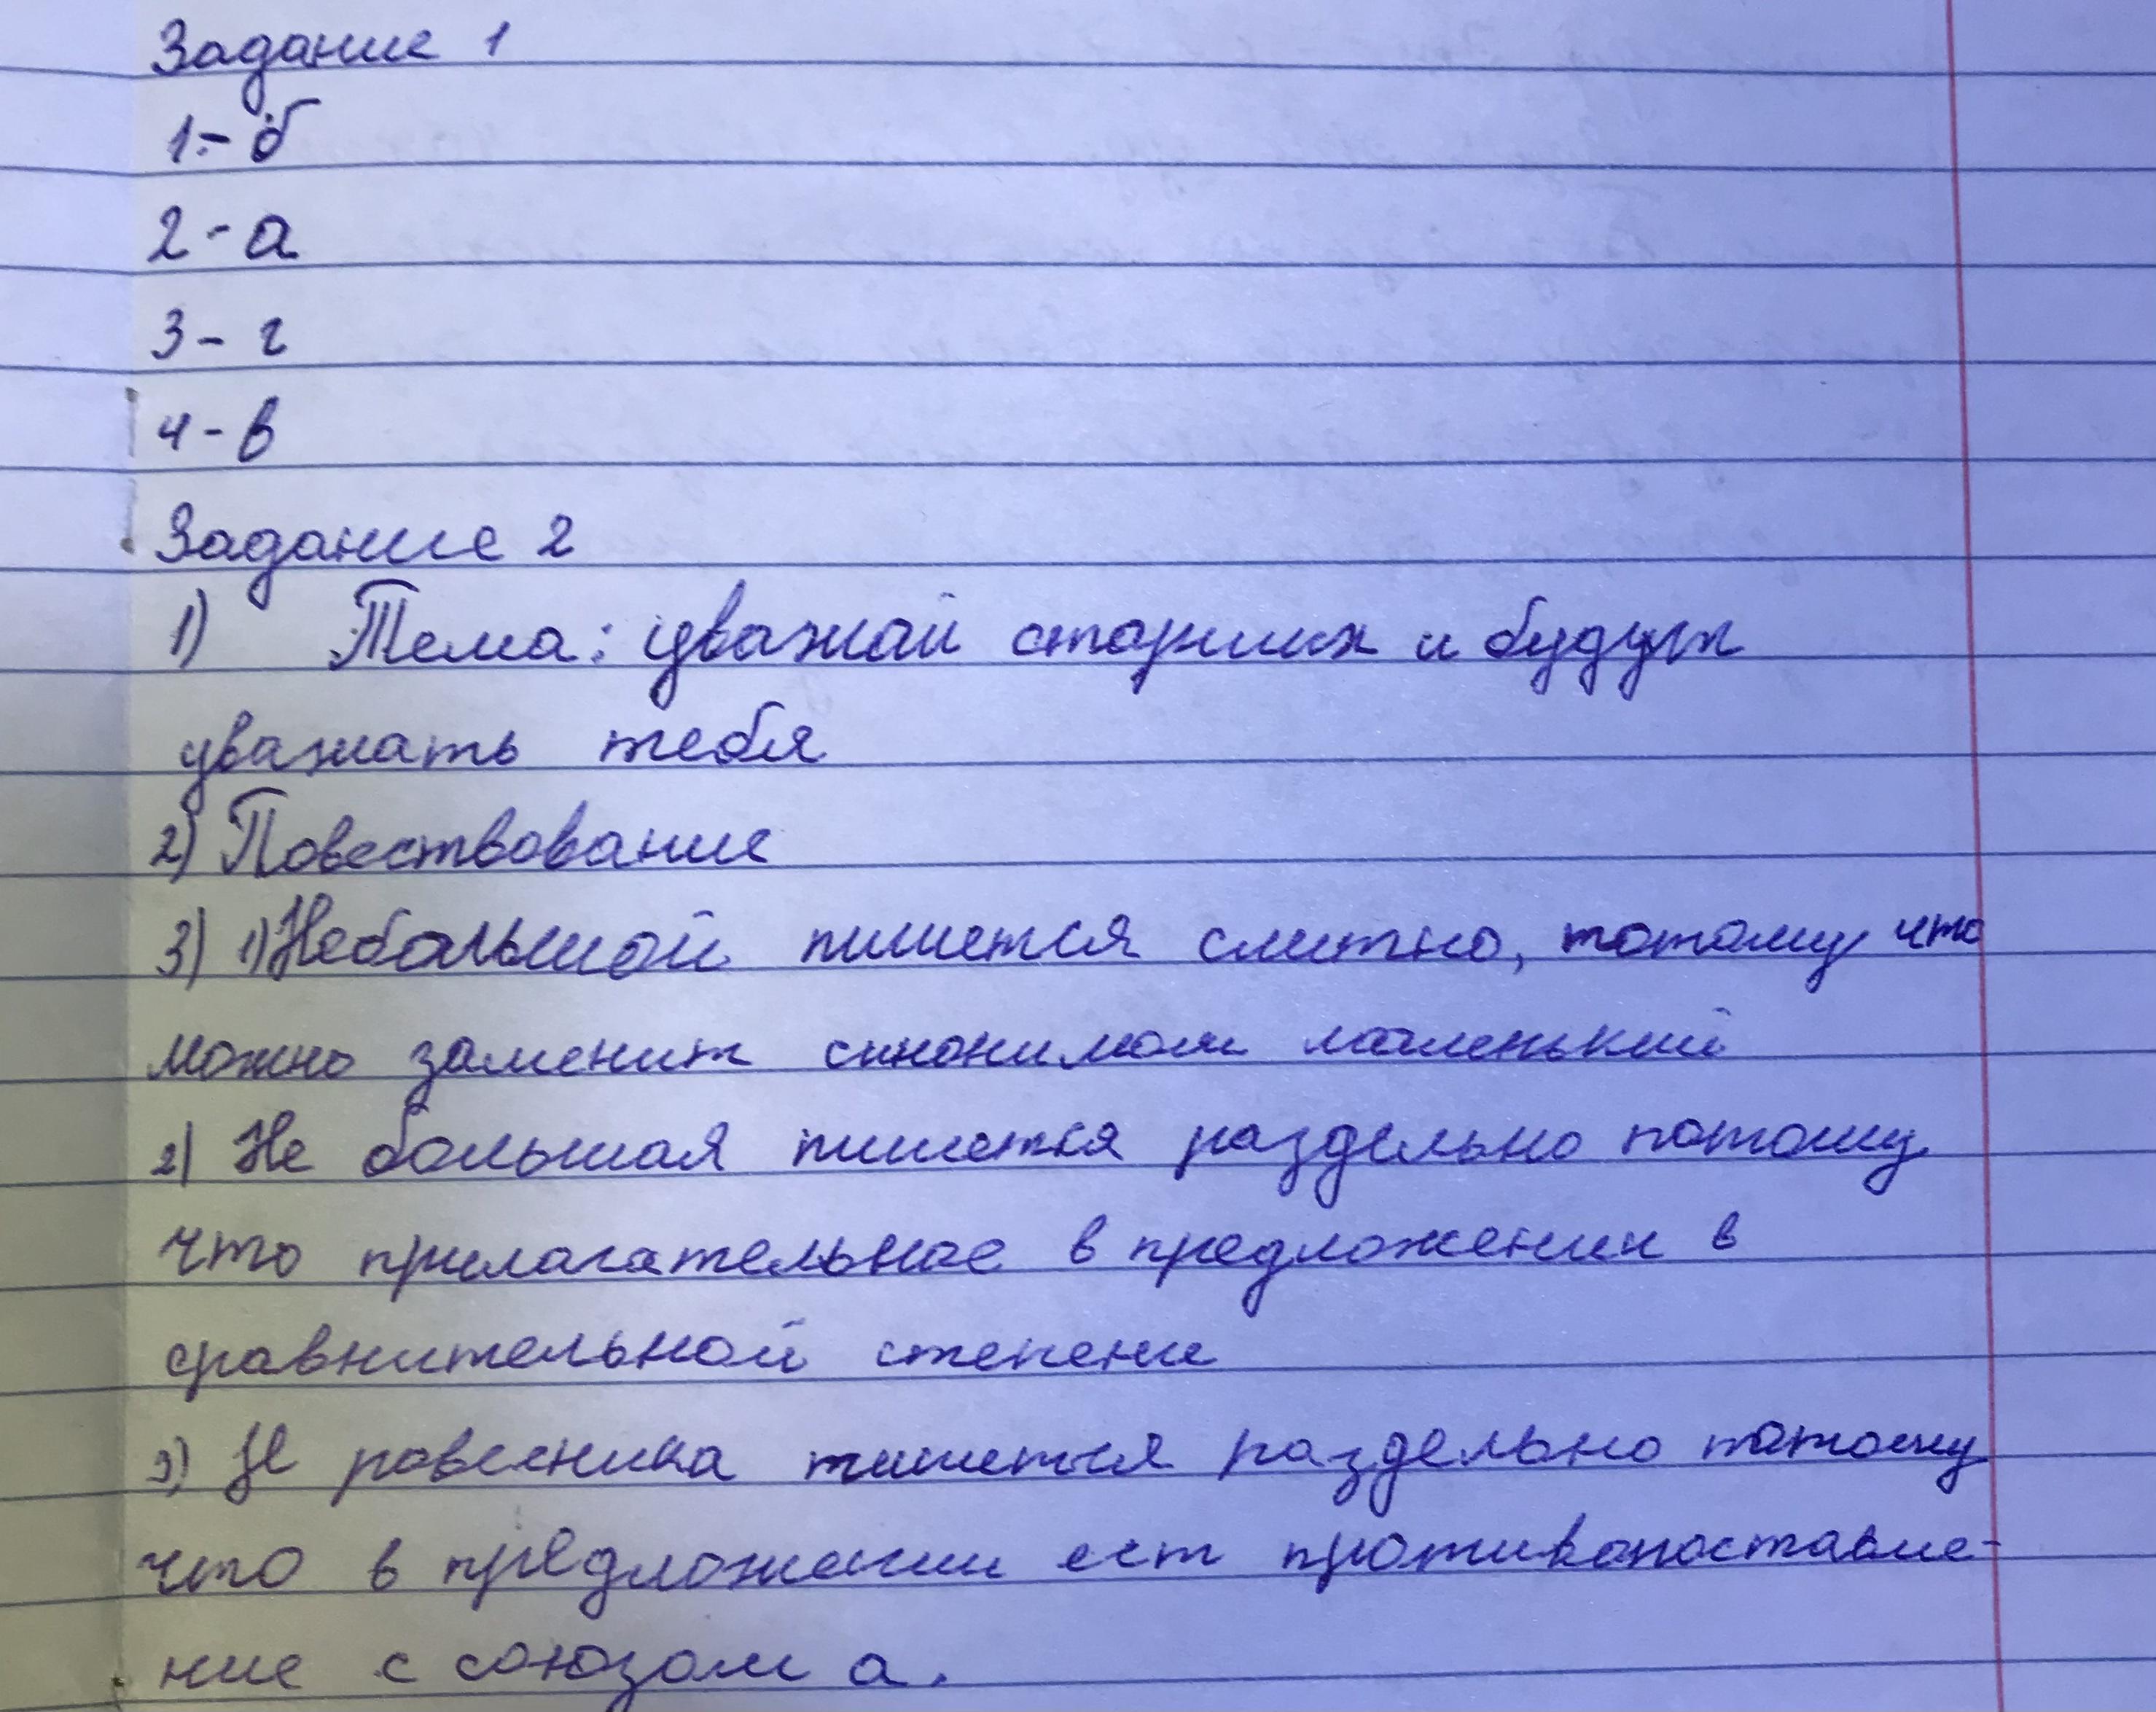 Задание 1
1.- б
2 - а
3 - г
4 - в
Задание 2
1) Тема: уважай старших и будут
уважать тебя
2) Повествование
3) 1) Небольшой пишется слитно, потому что
можно заменит синонимом маленький
2) Не большая пишется раздельно потому
что прилагательное в предложении в
сравнительной степени
3) Не ровесника пишется раздельно потому
что в предложении ест противопоставле-
ние с союзом а.